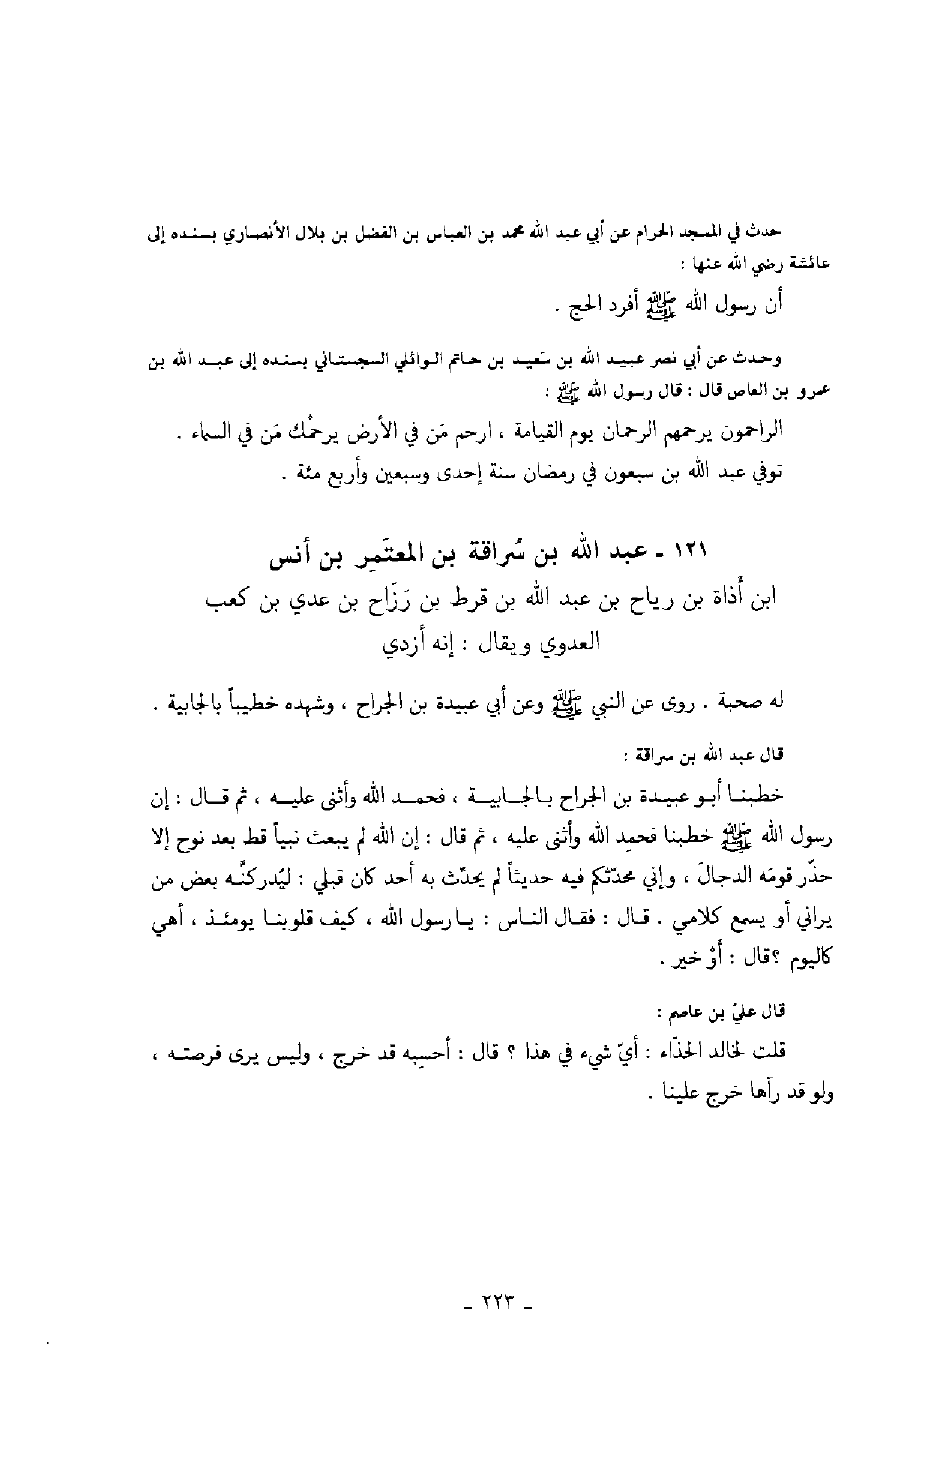 حدث في المسجد الحرام عن أبي عبد الله محمد بن العباس بن الفضل بن بلال الأنصاري بسنده إلى
عائشة رضي الله عنها :
أن رسول الله ﷺ أفرد الحج .
وحدث عن أبي نصر عبيد الله بن سَعيد بن حاتم الوائلي السجستاني بسنده إلى عبد الله بن
عمرو بن العاص قال : قال رسول الله ﷺ :
الراحمون يرحمهم الرحمان يوم القيامة ، ارحم مَن في الأرض يرحمْك مَن في السماء .
توفي عبد الله بن سبعون في رمضان سنة إحدى وسبعين وأربع مئة .
١٢١ ـ عبد الله بن سُراقة بن المعتَمِر بن أنس
ابن أَذاة بن رياح بن عبد الله بن قرط بن رَزَاح بن عدي بن كعب
العدوي ويقال : إنه أزدي
له صحبة . روى عن النبي ﷺ وعن أبي عبيدة بن الجراح ، وشهده خطيباً بالجابية .
قال عبد الله بن سراقة :
خطبنا أبو عبيدة بن الجراح بالجابية ، فحمد الله وأثنى عليه ، ثم قال : إن
رسول الله ﷺ خطبنا فحمِد الله وأثنى عليه ، ثم قال : إن الله لم يبعث نبياً قط بعد نوح إلا
حذّر قومَه الدجالَ ، وإني محدّثكم فيه حديثاً لم يحدّث به أحد كان قبلي : ليُدركنَّه بعض من
يراني أو يسمع كلامي . قال : فقال الناس : يا رسول الله ، كيف قلوبنا يومئذ ، أهي
كاليوم ؟ قال : أوْ خير .
قال عليّ بن عاصم :
قلت لخالد الحذّاء : أيّ شيء في هذا ؟ قال : أحسِبه قد خرج ، وليس يرى فرصته ،
ولو قد رآها خرج علينا .
ـ ٢٢٣ ـ